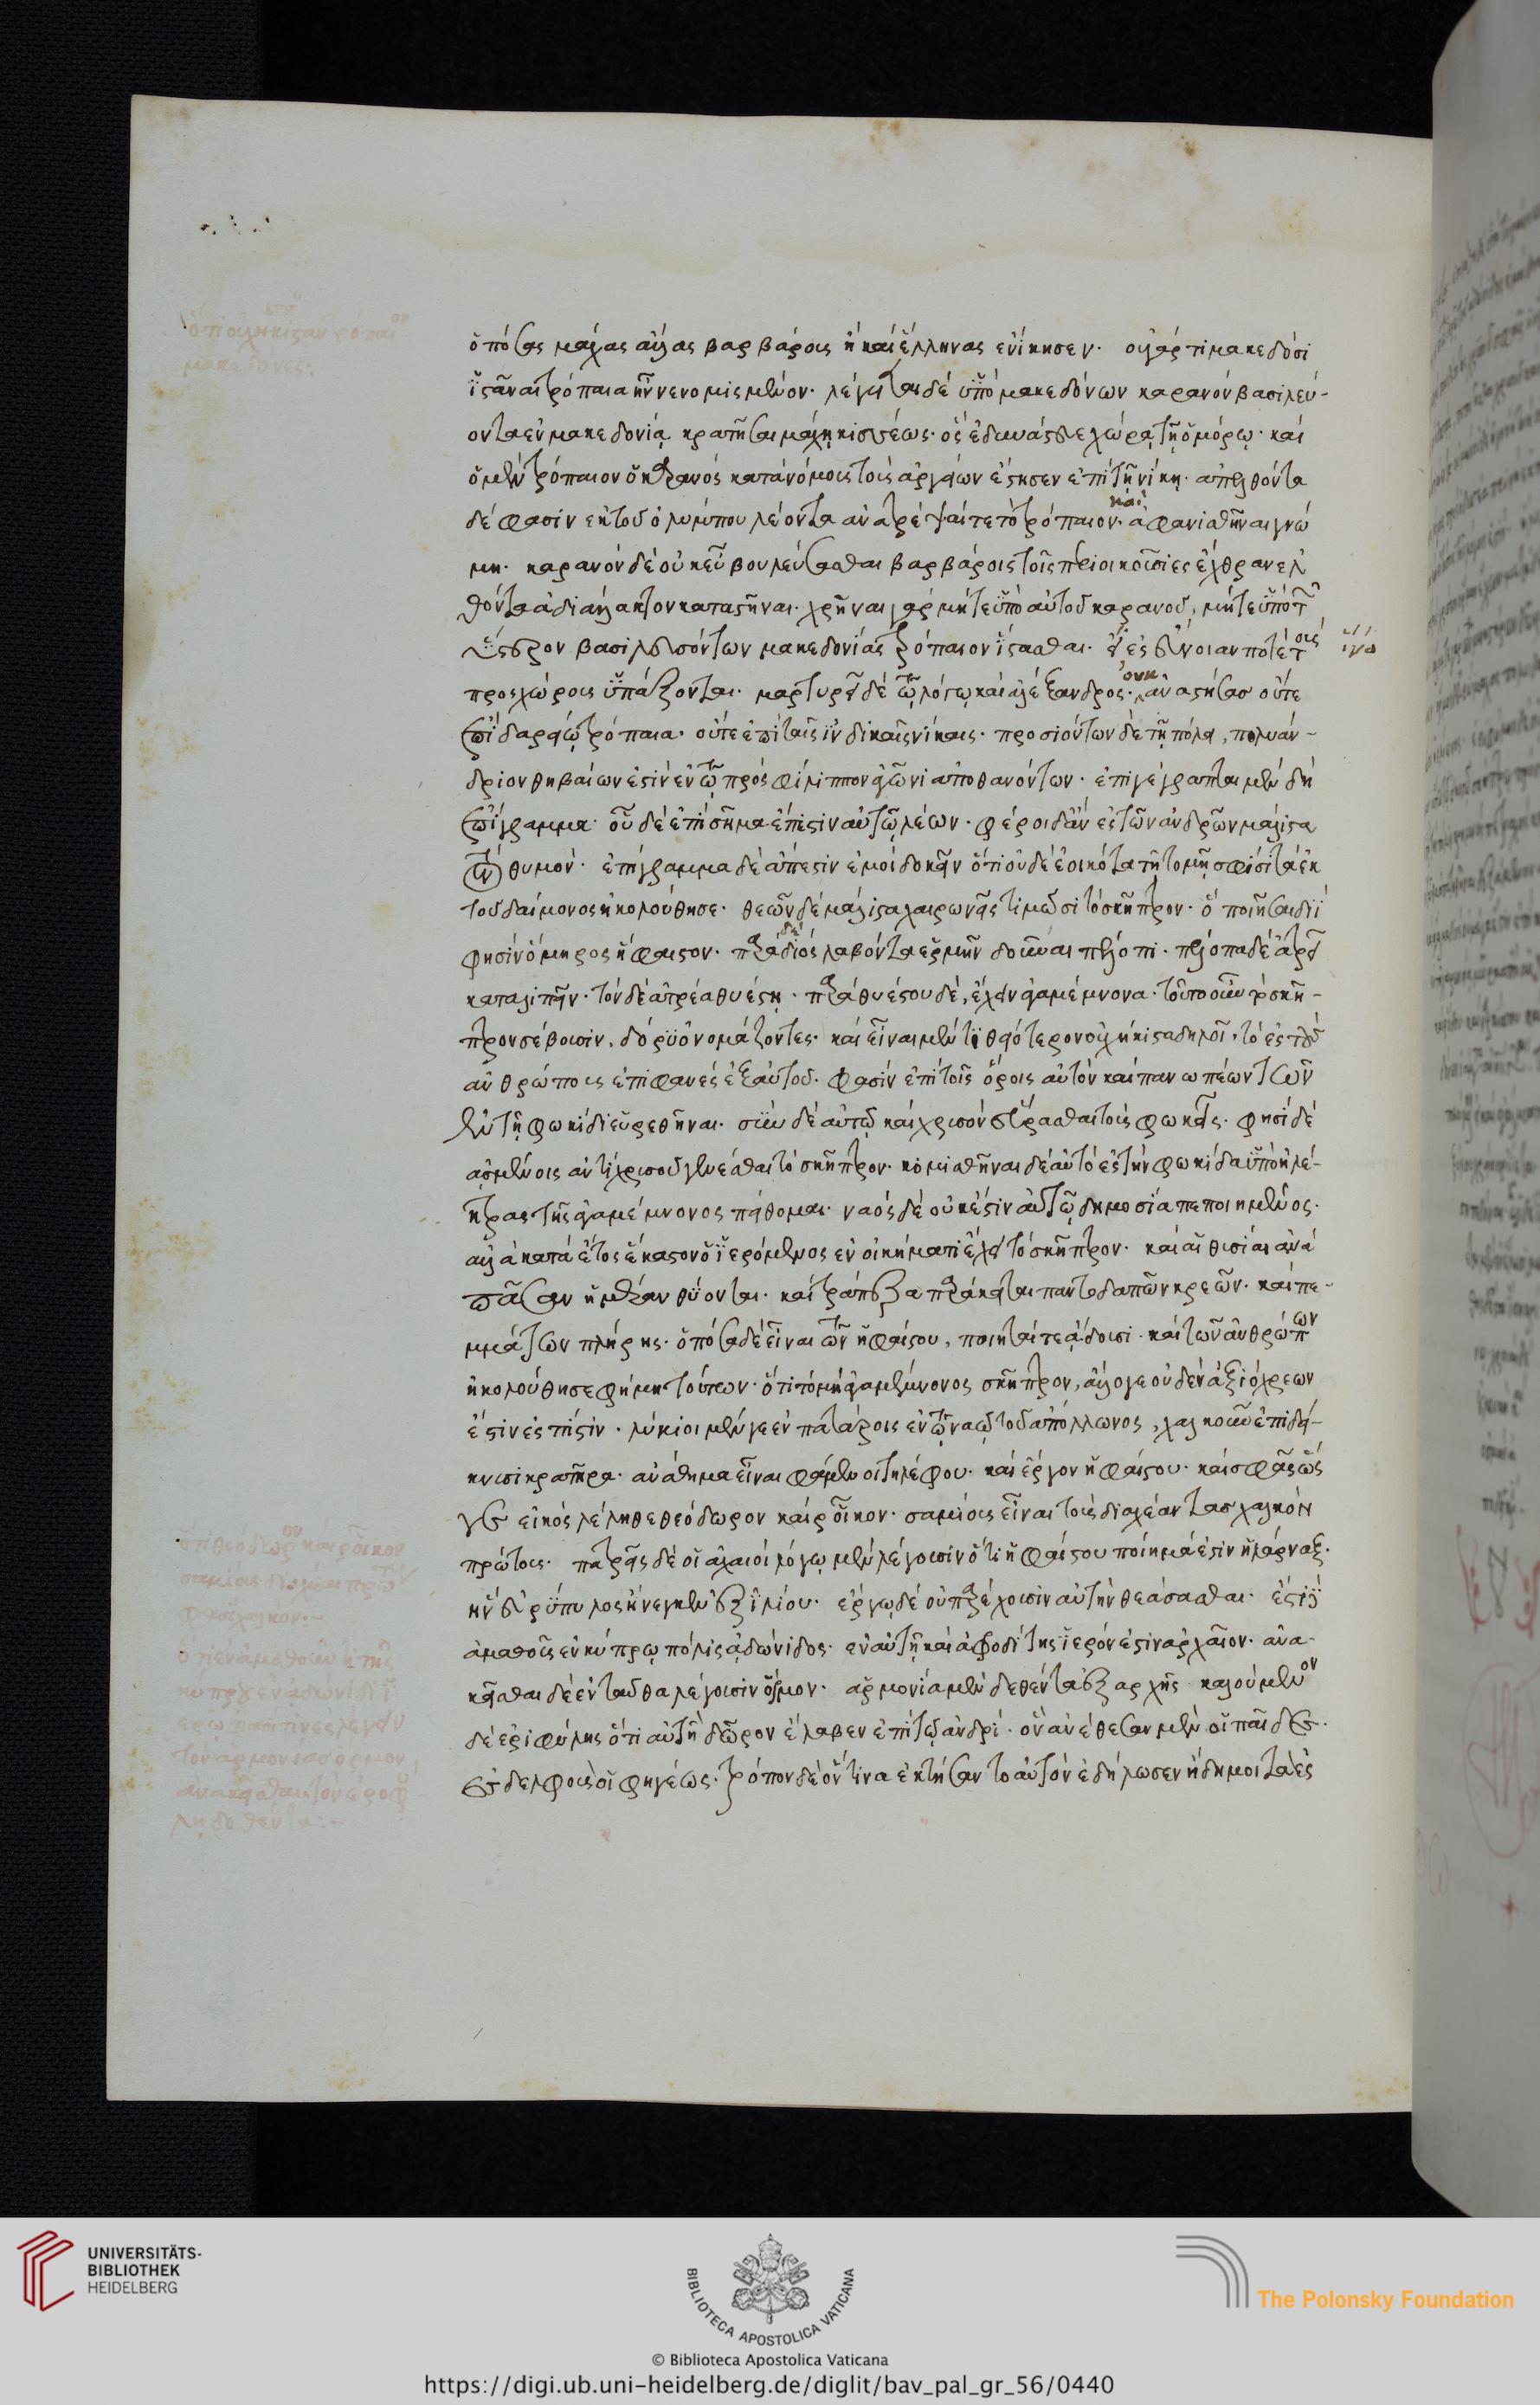 ὁπόσας μάχας ἄλλας βαρβάρους ἢ καὶ ἕλληνας ἐνίκησεν. οὐ γάρ τι μακεδόσι
ἱστάναι τρόπαια ἦν νενομισμένον. λέγεται δὲ ὑπὸ μακεδόνων καρανὸν βασιλεύ-
οντα ἐν μακεδονίᾳ κρατῆσαι μάχῃ κισσέως. ὃς ἐδυνάστευε χώρᾳ τῇ ὁμόρῳ. καὶ
ὁ μὲν τρόπαιον ὁ καρανὸς κατὰ νόμους τοὺς ἀργείων ἔστησεν ἐπὶ τῇ νίκῃ. ἀπελθόντα
δέ φασιν ἐκ τοῦ ὀλύμπου λέοντα ἀνατρέψαι τε τὸ τρόπαιον. καὶ ἀφανισθῆναι γνώ
μῃ. καρανὸν δὲ οὐκ εὖ βουλεύσασθαι βαρβάροις τοῖς περιοικοῦσι ἐς ἔχθραν ελ
θόντα ἀδιάλλακτον καταστῆναι. χρῆναι γὰρ μήτε ὑπὸ αὐτοῦ καρανοῦ, μήτε ὑπὸ τῶν
ὕστερον βασιλευσόντων μακεδονίας τρόπαιον ἵστασθαι. εἰ ἐς εὔνοιαν ποτὲ τοὺς
προσχώρους ὑπάξονται. μαρτυρεῖ δὲ τῷ λόγῳ καὶ ἀλέξανδρος. οὐκ ἀναστήσας οὔτε
ἐπὶ δαρείῳ τρόπαια. οὔτε ἐπὶ ταῖς ἰνδικαῖς νίκαις. προσιόντων δὲ τῇ πόλει, πολυάν-
δριον θηβαίων ἐστὶν ἐν τῷ πρὸς φίλιππον ἀγῶνι ἀποθανόντων. ἐπιγέγραπται μὲν δὴ
ἐπίγραμμα οὐδὲ ἐπίσημα ἔπεστιν αὐτῷ λέων. φέροι δ' ἂν ἐς τῶν ἀνδρῶν μάλιστα
τὸν θυμόν. ἐπίγραμμα δὲ ἄπεστιν ἐμοὶ δοκεῖν ὅτι οὐδὲ ἐοικότα τῇ τόλμῃ σφίσι τὰ ἐκ
τοῦ δαίμονος ἠκολούθησε. θεῶν δὲ μάλιστα χαιρωνεῖς τιμῶσι τὸ σκῆπτρον. ὃ ποιῆσαι διῒ
φησὶν ὅμηρος ἥφαιστον. παρὰ δὲ διὸς λαβόντα ἑρμῆν δοῦναι πέλοπι. πέλοπα δὲ ἀτρεῖ
καταλιπεῖν. τὸν δὲ ἀτρέα θυέστῃ. παρὰ θυέστου δὲ, ἔχειν ἀγαμέμνονα. τοῦτο οὖν τὸ σκῆ-
πτρον σέβουσιν, δόρυ ὀνομάζοντες. καὶ εἶναι μέν τι θειότερον οὐχ ἥκιστα δηλοῖ, τὸ ἐς τοὺς
ἀνθρώπους ἐπιφανὲς ἐξ αὐτοῦ. φασὶν ἐπὶ τοῖς ὅροις αὐτὸν καὶ πανωπέων τῶν
ἐν τῇ φωκίδι εὑρεθῆναι. σὺν δὲ αὐτῷ καὶ χρυσὸν εὕρασθαι τοὺς φωκεῖς. φησὶ δὲ
ἀσμένοις ἀντὶ χρυσοῦ γενέσθαι τὸ σκῆπτρον. κομισθῆναι δὲ αὐτὸ ἐς τὴν φωκίδα ὑπὸ ἠλέ-
κτρας τῆς ἀγαμέμνονος πείθομαι. ναὸς δὲ οὐκ ἔστιν αὐτῷ δημοσίᾳ πεποιημένος.
ἀλλὰ κατὰ ἔτος ἕκαστον ὁ ἱερόμενος ἐν οἰκήματι ἔχει τὸ σκῆπτρον. καὶ αἱ θυσίαι ἀνὰ
πᾶσαν ἡμέραν θύονται. καὶ τράπεζα παράκειται παντοδαπῶν κρεῶν. καὶ πε-
μμάτων πλήρης. ὁπόσα δὲ εἶναι τῶν ἡφαίστου, ποιηταί τε ᾄδουσι. καὶ τῶν ἀνθρώπων
ἠκολούθησε φήμη τούτων. ὅτι τὸ μὴ ἀγαμέμνονος σκῆπτρον, ἄλλο γε οὐδὲν ἀξιόχρεων
ἐστὶν ἐς πίστιν. λύκιοι μέν γε ἐν πατάροις ἐν τῷ ναῷ τοῦ ἀπόλλωνος, χαλκοῦν ἐπιδεί-
κνυσι κρατῆρα. ἀνάθημα εἶναι φάμενοι τηλέφου. καὶ ἔργον ἡφαίστου. καὶ σφᾶς ὡς
γε εἰκὸς λέληθε θεόδωρον καὶ ῥοῖκον. σαμίους εἶναι τοὺς διαχέαντας χαλκὸν
πρώτους. πατρεῖς δὲ οἱ ἀχαιοὶ λόγῳ μὲν λέγουσιν ὅτι ἡφαίστου ποίημά ἐστιν ἡ λάρναξ.
ἣν εὐρύπυλος ἤνεγκεν ἐξ ἰλίου. ἔργῳ δὲ οὐ παρέχουσιν αὐτὴν θεάσασθαι. ἔστι δὲ
ἀμαθοῦς ἐν κύπρῳ πόλις ἀδώνιδος. ἐν αὐτῇ καὶ ἀφροδίτης ἱερόν ἐστιν ἀρχαῖον. ἀνα-
κεῖσθαι δὲ ἐνταῦθα λέγουσιν ὅρμον. ἁρμονίᾳ μὲν δοθέντα ἐξ ἀρχῆς καλούμενον
δὲ ἐριφύλης ὅτι αὐτὴ δῶρον ἔλαβεν ἐπὶ τῷ ἀνδρί. ὃν ἀνέθεσαν μὲν οἱ παῖδες
ἐς δελφοὺς οἱ φηγέως. τρόπον δὲ ὅντινα ἐκτήσαντο αὐτὸν ἐδήλωσεν ἤδη μοι τὰ ἐς
UNIVERSITÄTS-
BIBLIOTHEK
HEIDELBERG
BIBLIOTECA APOSTOLICA VATICANA
The Polonsky Foundation
© Biblioteca Apostolica Vaticana
https://digi.ub.uni-heidelberg.de/diglit/bav_pal_gr_56/0440